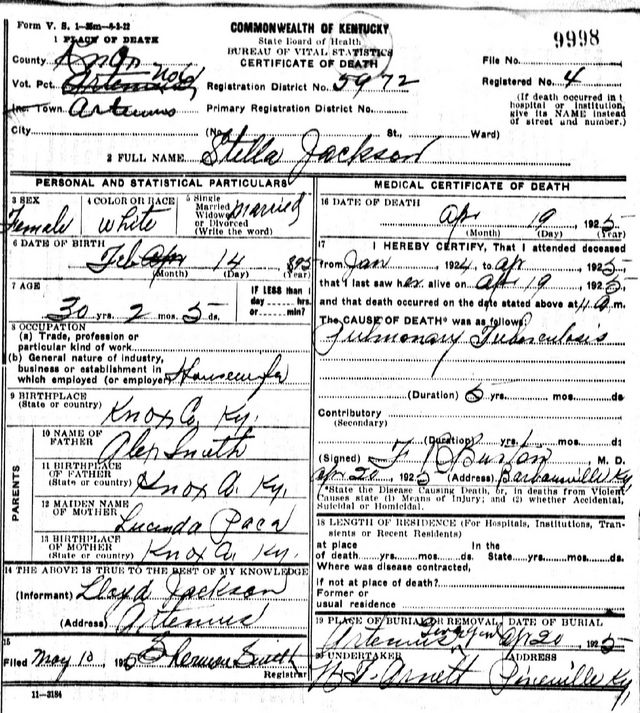 Form V. S. 1—35m—6-2-22
COMMONWEALTH OF KENTUCKY
State Board of Health
BUREAU OF VITAL STATISTICS
CERTIFICATE OF DEATH
9998
1 PLACE OF DEATH
County Knox
File No.
Vot. Pct. Artemus No
Registration District No. 5972
Registered No. 4
Inc. Town Artemus
Primary Registration District No.
(If death occurred in a
hospital or institution,
give its NAME instead
of street and number.)
City (No. St., Ward)
2 FULL NAME Stella Jackson
PERSONAL AND STATISTICAL PARTICULARS
3 SEX
Female
4 COLOR OR RACE
White
5 Single
Married
Widowed
or Divorced
(Write the word)
Married
6 DATE OF BIRTH
Feb Apr 14 895
(Month) (Day) (Year)
7 AGE
30 yrs. 2 mos. 5 ds.
IF LESS than 1
day hrs.
or min?
8 OCCUPATION
(a) Trade, profession or
particular kind of work
(b) General nature of industry,
business or establishment in
which employed (or employer) Housewife
9 BIRTHPLACE
(State or country)
Knox Co, Ky.
PARENTS
10 NAME OF
FATHER
Alex Smith
11 BIRTHPLACE
OF FATHER
(State or country)
Knox Co. Ky.
12 MAIDEN NAME
OF MOTHER
Lucinda Paca
13 BIRTHPLACE
OF MOTHER
(State or country)
Knox Co. Ky.
14 THE ABOVE IS TRUE TO THE BEST OF MY KNOWLEDGE
(Informant) Lloyd Jackson
(Address) Artemus
15
Filed May 10, 1925 Sherman Smith
Registrar
11—3184
MEDICAL CERTIFICATE OF DEATH
16 DATE OF DEATH
Apr 19, 1925
(Month) (Day) (Year)
17 I HEREBY CERTIFY, That I attended deceased
from Jan 1924, to Apr, 1925
that I last saw her alive on Apr 19 1925
and that death occurred on the date stated above at m.
The CAUSE OF DEATH* was as follows:
Pulmonary Tuberculosis
(Duration) 5 yrs. mos. ds
Contributory
(Secondary)
(Duration) yrs. mos. ds
(Signed) F R Burton M. D.
Apr 20, 1925 (Address) Barbourville Ky
*State the Disease Causing Death, or, in deaths from Violent
Causes state (1) Means of Injury; and (2) whether Accidental,
Suicidal or Homicidal.
18 LENGTH OF RESIDENCE (For Hospitals, Institutions, Tran-
sients or Recent Residents)
at place In the
of death yrs. mos. ds. State yrs. mos. ds.
Where was disease contracted,
if not at place of death?
Former or
usual residence
19 PLACE OF BURIAL OR REMOVAL DATE OF BURIAL
Artemus Apr 20, 1925
20 UNDERTAKER ADDRESS
Arnett Pineville Ky